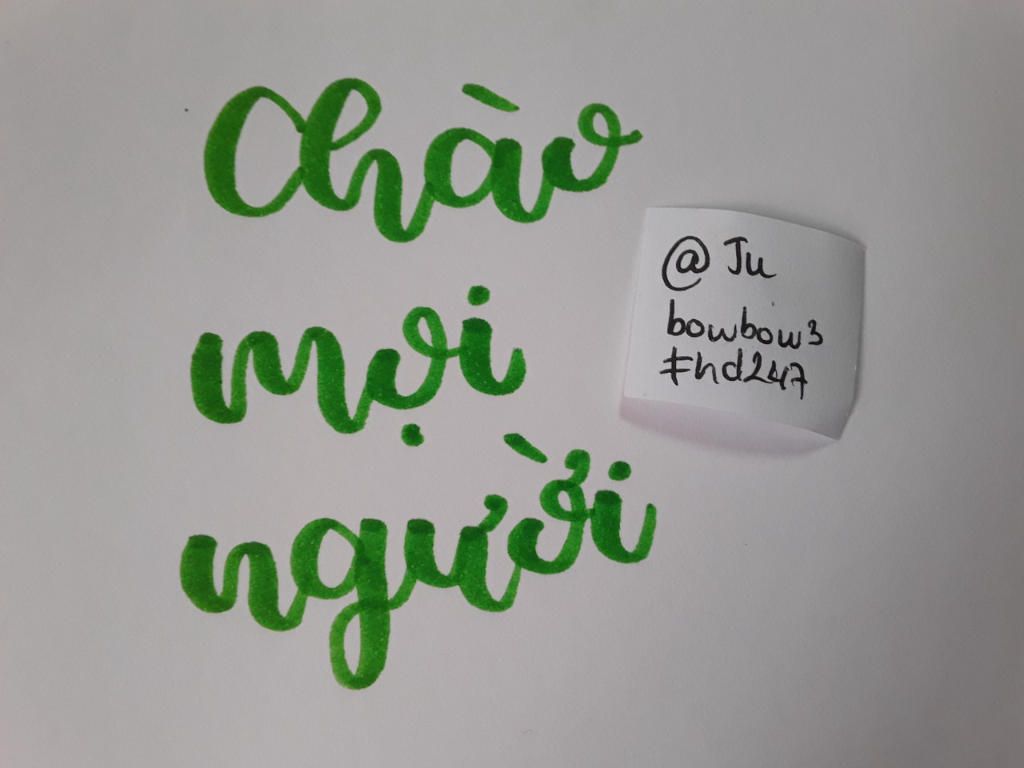 Chào
mọi
người
@Ju
bowbow3
#hd247